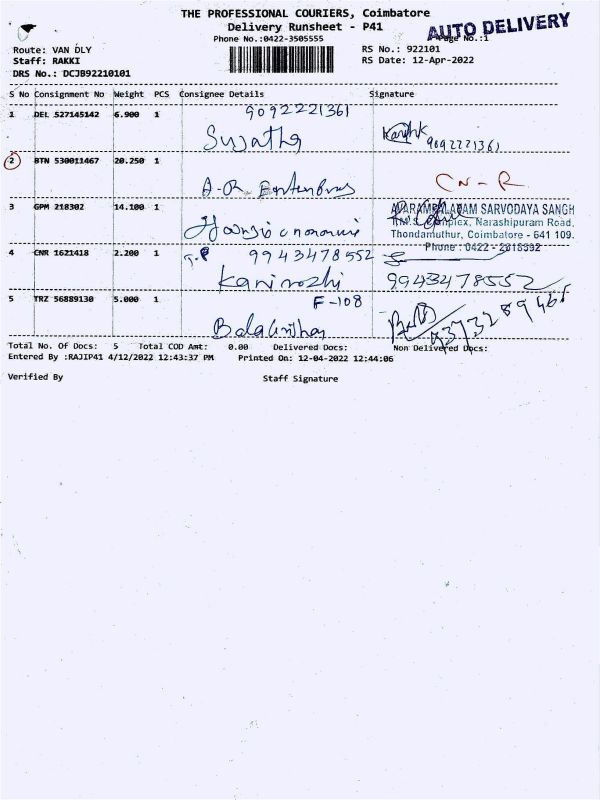 THE PROFESSIONAL COURIERS, Coimbatore
Delivery Runsheet - P41
AUTO DELIVERY
Phone No.:0422-3505555
Page No.:1
Route: VAN DLY
RS No.: 922101
Staff: RAKKI
RS Date: 12-Apr-2022
DRS No.: DCJB92210101
S No Consignment No Weight PCS Consignee Details Signature
9092221361
1 DEL 527145142 6.900 1
Sujatha 9092221361
2 BTN 530011467 20.250 1
A-R CN-R
3 GPM 218302 14.100 1
SARVODAYA SANGH
Narashipuram Road,
Thondamuthur, Coimbatore - 641 109.
Phone : 0422 - 2618392
4 CNR 1621418 2.200 1 9943478552
Kanimozhi 9943478552
F-108
5 TRZ 56889130 5.000 1
Total No. Of Docs: 5 Total COD Amt: 0.00 Delivered Docs: Non Delivered Docs:
Entered By :RAJIP41 4/12/2022 12:43:37 PM Printed On: 12-04-2022 12:44:06
Verified By Staff Signature